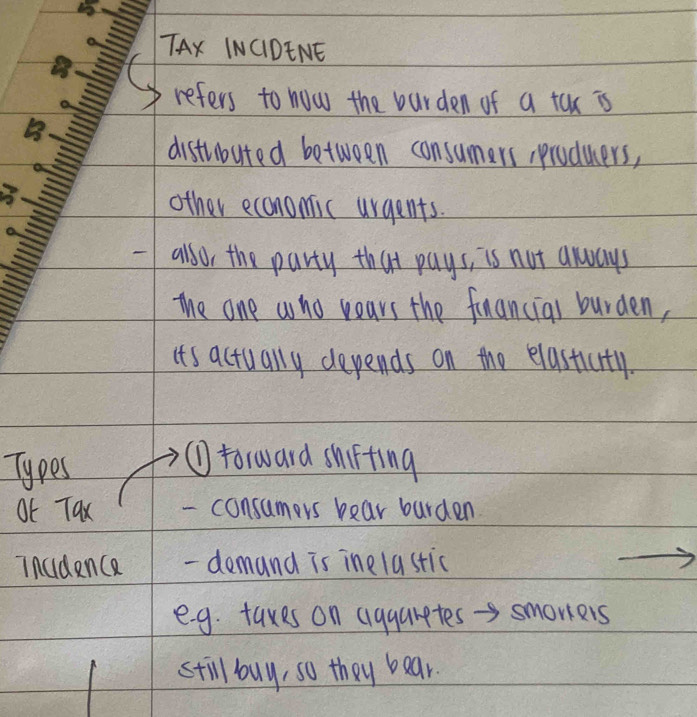 TAX INCIDENE
refers to how the burden of a tax is
distributed between consumers, producers,
other economic urgents.
- also, the party that pays, is not always
the one who bears the financial burden,
it's actually depends on the elasticity.
Types
of Tax
incidence
→ ① forward shifting
- consumers bear burden
- demand is inelastic →
e.g. taxes on → smokers
still buy, so they bear.